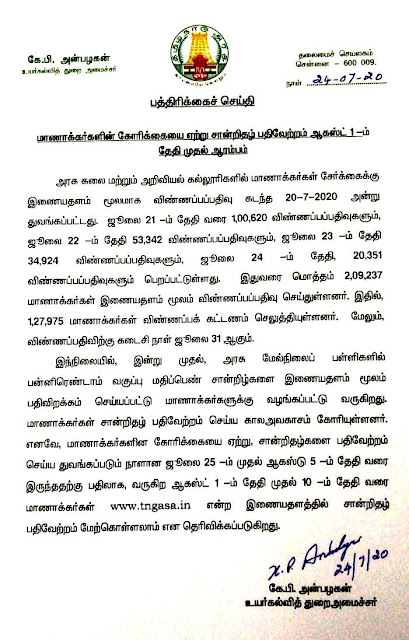 கே.பி. அன்பழகன்
உயர்கல்வித் துறை அமைச்சர்
தலைமைச் செயலகம்
சென்னை – 600 009.
நாள் 24-07-20
பத்திரிக்கைச் செய்தி
மாணாக்கர்களின் கோரிக்கையை ஏற்று சான்றிதழ் பதிவேற்றம் ஆகஸ்ட் 1 –ம்
தேதி முதல் ஆரம்பம்
அரசு கலை மற்றும் அறிவியல் கல்லூரிகளில் மாணாக்கர் சேர்க்கைக்கு
இணையதளம் மூலமாக விண்ணப்பப்பதிவு கடந்த 20-7-2020 அன்று
துவங்கப்பட்டது. ஜூலை 21 –ம் தேதி வரை 1,00,620 விண்ணப்பப்பதிவுகளும்,
ஜூலை 22 –ம் தேதி 53,342 விண்ணப்பபதிவுகளும், ஜூலை 23 –ம் தேதி
34,924 விண்ணப்பப்பதிவுகளும், ஜூலை 24 –ம் தேதி, 20,351
விண்ணப்பபதிவுகளும் பெறப்பட்டுள்ளது. இதுவரை மொத்தம் 2,09,237
மாணாக்கர்கள் இணையதளம் மூலம் விண்ணப்பபதிவு செய்துள்ளனர். இதில்,
1,27,975 மாணாக்கர்கள் விண்ணப்பக் கட்டணம் செலுத்தியுள்ளனர். மேலும்,
விண்ணப்பதிவிற்கு கடைசி நாள் ஜூலை 31 ஆகும்.
இந்நிலையில், இன்று முதல், அரசு மேல்நிலைப் பள்ளிகளில்
பன்னிரெண்டாம் வகுப்பு மதிப்பெண் சான்றிழ்களை இணையதளம் மூலம்
பதிவிறக்கம் செய்யப்பட்டு மாணாக்கர்களுக்கு வழங்கப்பட்டு வருகிறது.
மாணாக்கர்கள் சான்றிதழ் பதிவேற்றம் செய்ய காலஅவகாசம் கோரியுள்ளனர்.
எனவே, மாணாக்கர்களின கோரிக்கையை ஏற்று, சான்றிதழ்களை பதிவேற்றம்
செய்ய துவங்கப்படும் நாளான ஜூலை 25 –ம் முதல் ஆகஸ்டு 5 –ம் தேதி வரை
இருந்ததற்கு பதிலாக, வருகிற ஆகஸ்ட் 1 –ம் தேதி முதல் 10 –ம் தேதி வரை
மாணாக்கர்கள் www.tngasa.in என்ற இணையதளத்தில் சான்றிதழ்
பதிவேற்றம் மேற்கொள்ளலாம் என தெரிவிக்கப்படுகிறது.
24/7/20
கே.பி. அன்பழகன்
உயர்கல்வித் துறைஅமைச்சர்